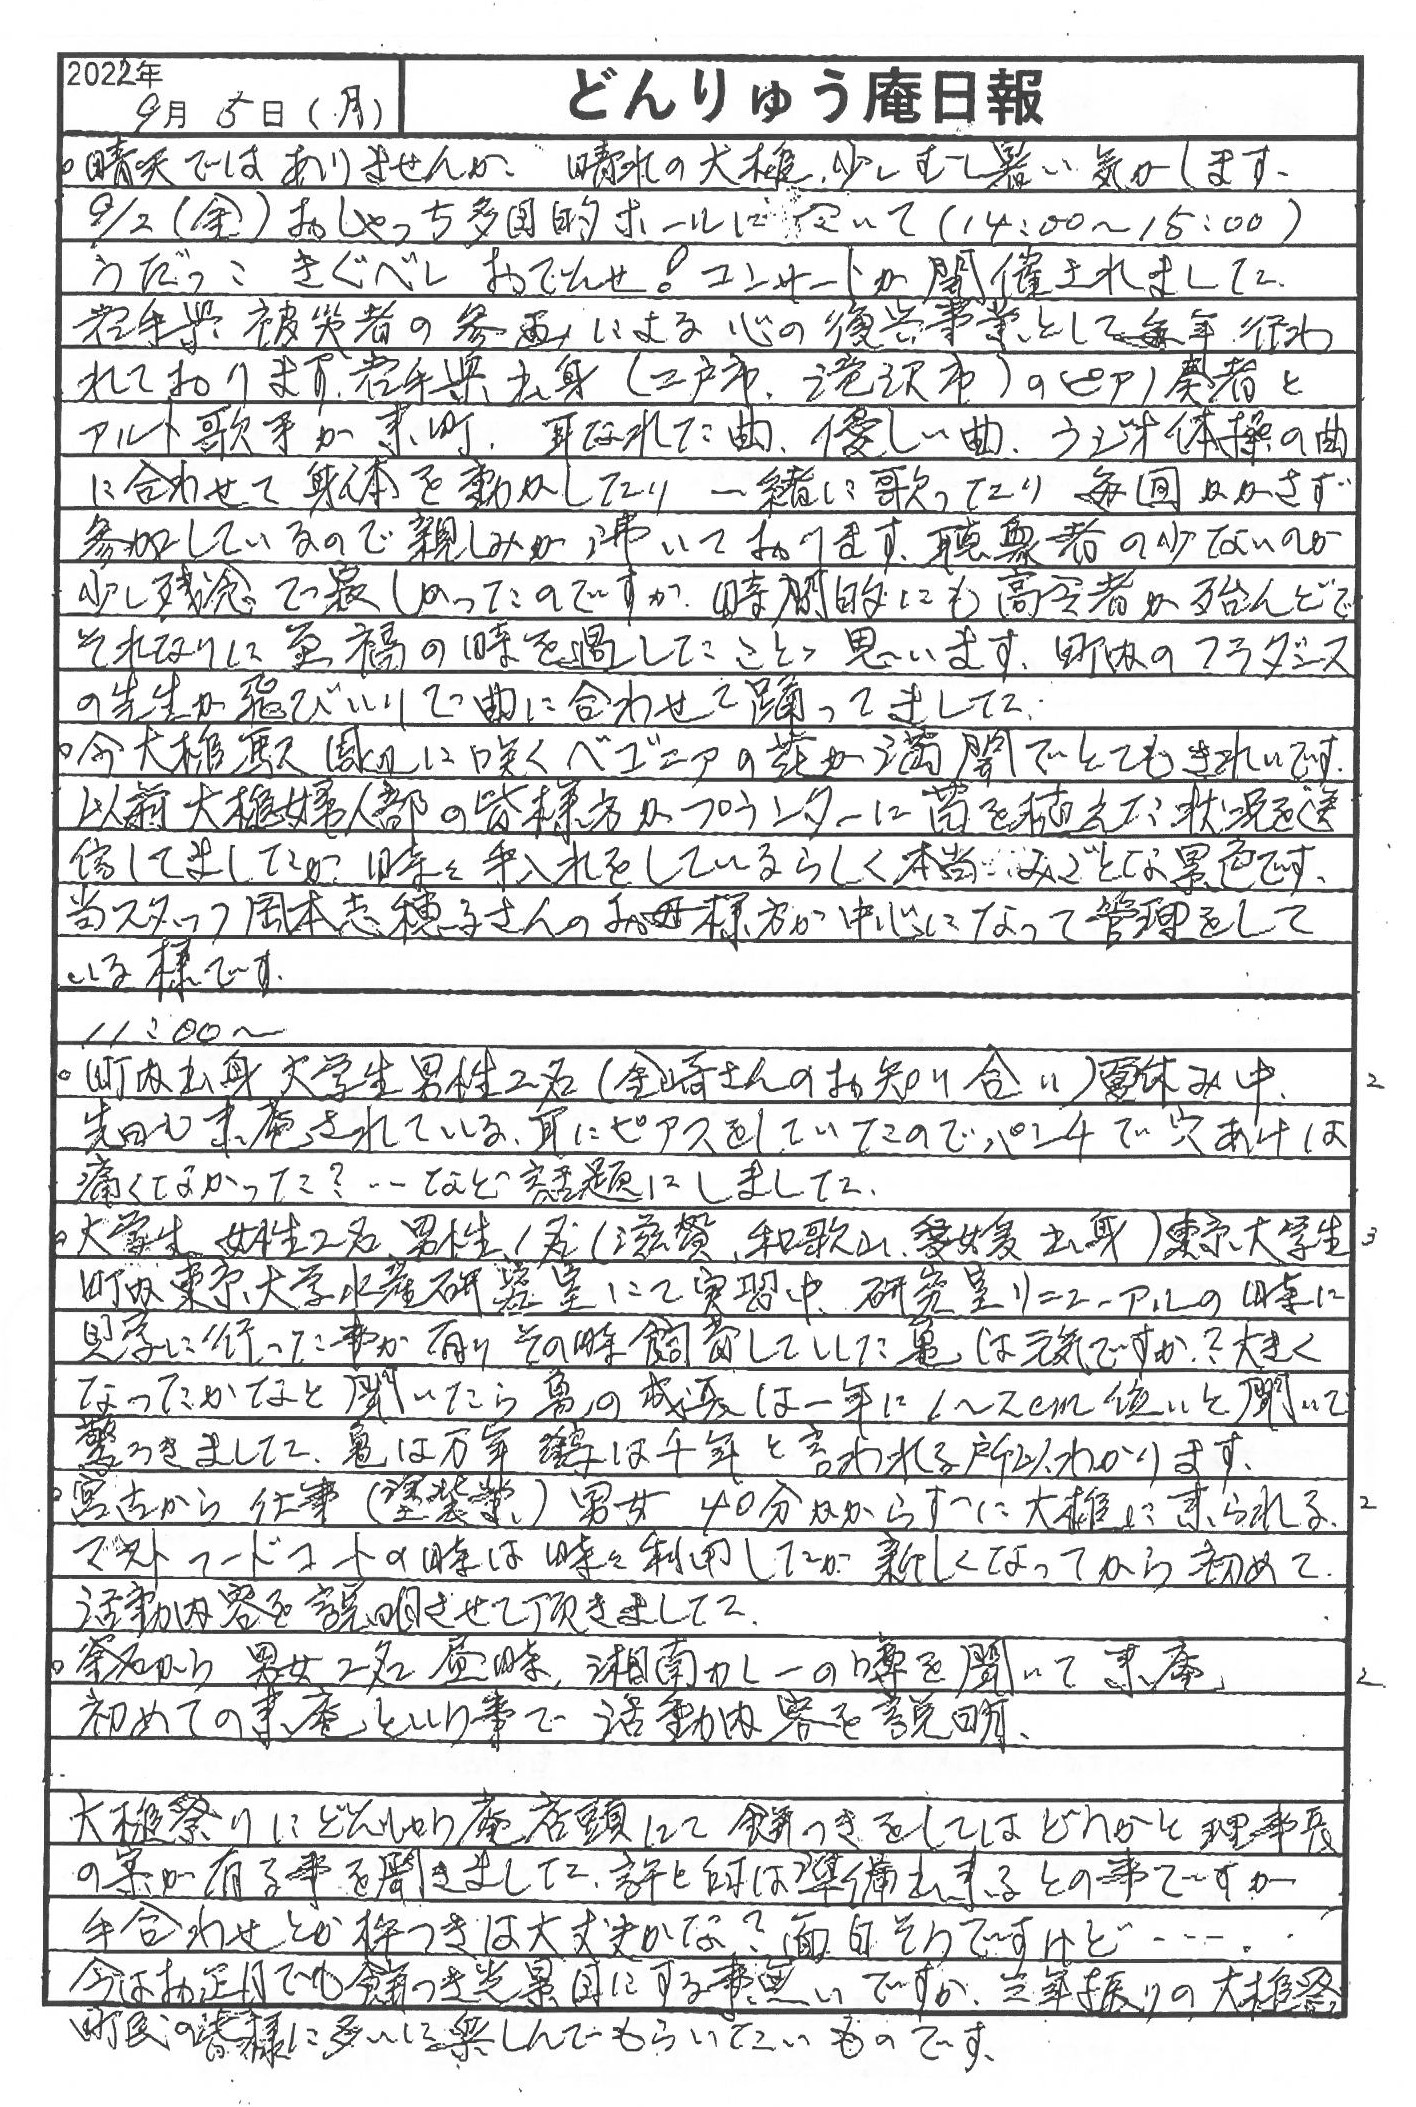 2022年
9月 5日(月)
どんりゅう庵日報
。晴天ではありませんが、晴れの大槌、少しむし暑い気がします、
9/2(金)おしゃっち多目的ホールに於いて(14:00~15:00)
うだっこ きぐべし おでんせ!コンサートが開催されました、
岩手県被災者の参画による心の復興事業として毎年行わ
れております、岩手県出身(二戸市、滝沢市)のピアノ奏者と
アルト歌手が来町、耳なれた曲、優しい曲、ラジオ体操の曲
に合わせて身体を動かしたり一緒に歌ったり毎回かかさず
参加しているので親しみが沸いております、聴衆者の少ないのが
少し残念で寂しかったのですが、時間的にも高令者が殆んどで
それなりに至福の時を過したことゝ思います、町内のフラダンス
の先生が飛びいりで曲に合わせて踊ってました、
。今大槌駅周辺に咲くベゴニアの花が満開でとてもきれいです、
以前大槌婦人部の皆様方がプランターに苗を植えた状況を送
信してましたが、時々手入れをしているらしく本当にみごとな景色です、
当スタッフ岡本志穂子さんのお母様方が中心になって管理をして
いる様です、
11:00~
。町内出身大学生男性2名(金崎さんのお知り合い)夏休み中、 2
先日も来庵されている、耳にピアスをしていたのでパンチで穴あけは
痛くなかった?‥など話題にしました、
。大学生 女性2名 男性1名(滋賀、和歌山、愛媛出身)東京大学生 3
町内東京大学水産研究室にて実習中、研究室リニューアルの時に
見学に行った事が有りその時飼育していた亀は元気ですか?大きく
なったかなと聞いたら亀の成長は一年に1~2cm位いと聞いて
驚ろきました、亀は万年 鶴は千年と言われる所以わかります、
。宮古から仕事(塗装業)男女 40分かからずに大槌に来られる、 2
マストフードコートの時は時々利用したが新しくなってから初めて、
活動内容を説明させて頂きました、
。釜石から 男女2名 昼時、湘南カレーの噂を聞いて来庵、 2
初めての来庵という事で活動内容を説明、
大槌祭りにどんりゅう庵店頭にて餅つきをしてはどうかと理事長
の案が有る事を聞きました、許と臼は準備出来るとの事ですが
手合わせとか杵つきは大丈夫かな?面白そうですけど‥‥‥
今はお正月でも餅つき光景目にする事無いですが、三年振りの大槌祭
町民の皆様に多いに楽しんでもらいたいものです、